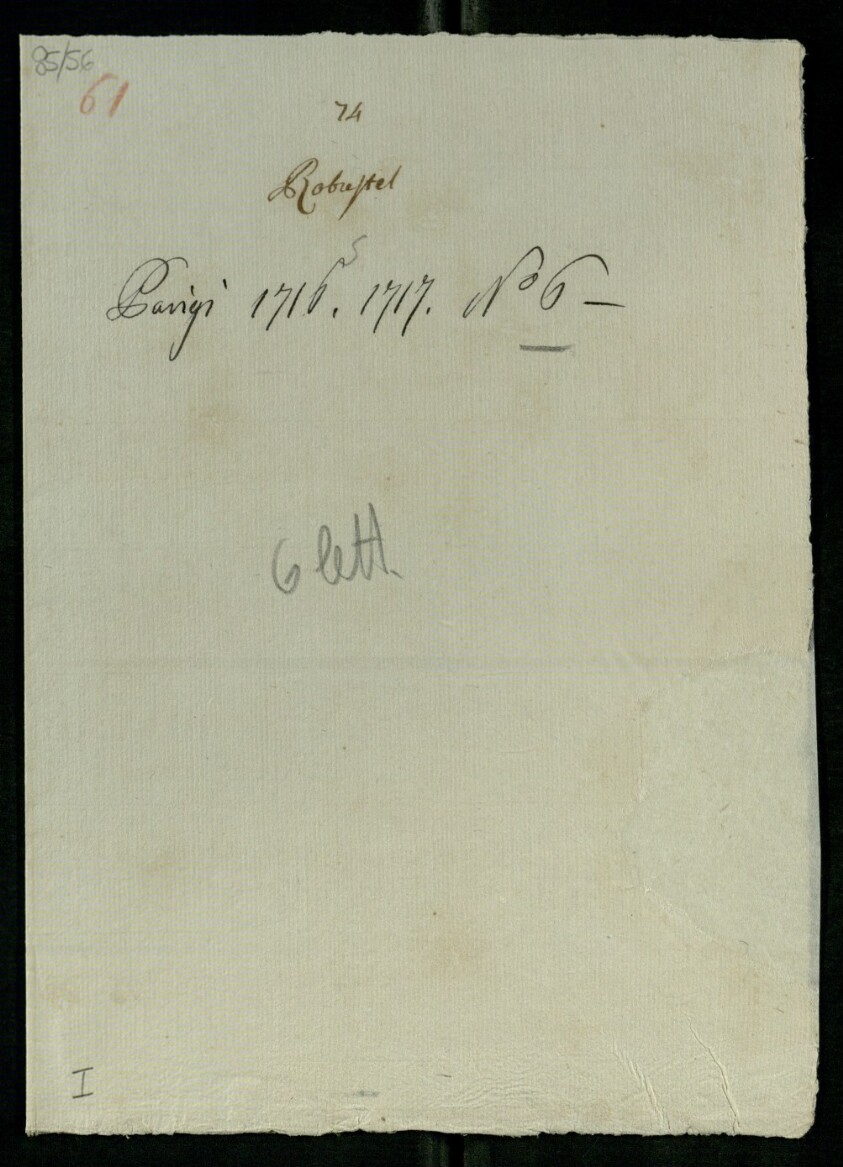 85/56
61
74
Robustel
5
Parigi 1716. 1717. No 6 –
6 lett.
I